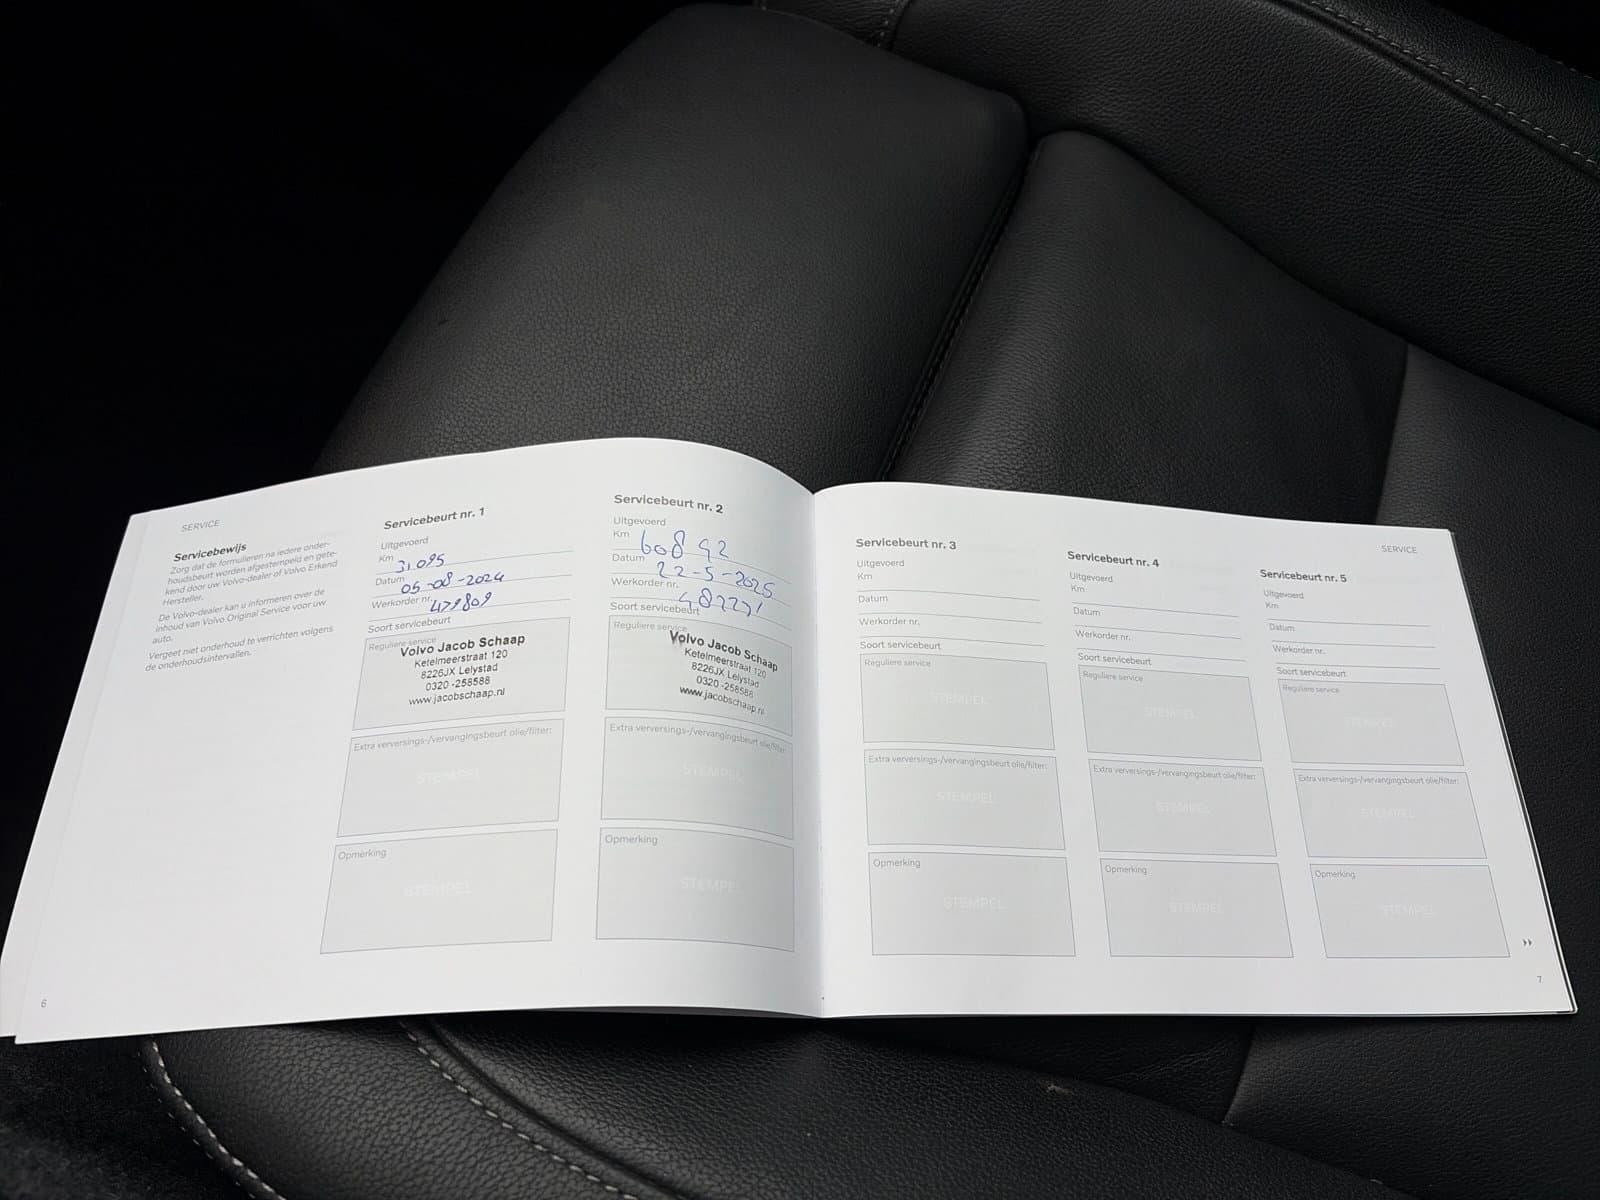 SERVICE
Servicebewijs
Zorg dat de formulieren na iedere onder-
houdsbeurt worden afgestempeld en gete-
kend door uw Volvo-dealer of Volvo Erkend
Hersteller.
De Volvo-dealer kan u informeren over de
inhoud van Volvo Original Service voor uw
auto.
Vergeet niet onderhoud te verrichten volgens
de onderhoudsintervallen.
Servicebeurt nr. 1
Uitgevoerd
Km 31.095
Datum 05-08-2024
Werkorder nr. 479809
Soort servicebeurt
Reguliere service
Volvo Jacob Schaap
Ketelmeerstraat 120
8226JX Lelystad
0320-258588
www.jacobschaap.nl
Extra verversings-/vervangingsbeurt olie/filter:
STEMPEL
Opmerking
STEMPEL
Servicebeurt nr. 2
Uitgevoerd
Km 60892
Datum 22-5-2025
Werkorder nr.
Soort servicebeurt
Reguliere service
Volvo Jacob Schaap
Ketelmeerstraat 120
8226JX Lelystad
0320-258588
www.jacobschaap.nl
Extra verversings-/vervangingsbeurt olie/filter:
STEMPEL
Opmerking
STEMPEL
6
SERVICE
Servicebeurt nr. 3
Uitgevoerd
Km
Datum
Werkorder nr.
Soort servicebeurt
Reguliere service
STEMPEL
Extra verversings-/vervangingsbeurt olie/filter:
STEMPEL
Opmerking
STEMPEL
Servicebeurt nr. 4
Uitgevoerd
Km
Datum
Werkorder nr.
Soort servicebeurt
Reguliere service
STEMPEL
Extra verversings-/vervangingsbeurt olie/filter:
STEMPEL
Opmerking
STEMPEL
Servicebeurt nr. 5
Uitgevoerd
Km
Datum
Werkorder nr.
Soort servicebeurt
Reguliere service
STEMPEL
Extra verversings-/vervangingsbeurt olie/filter:
STEMPEL
Opmerking
STEMPEL
7